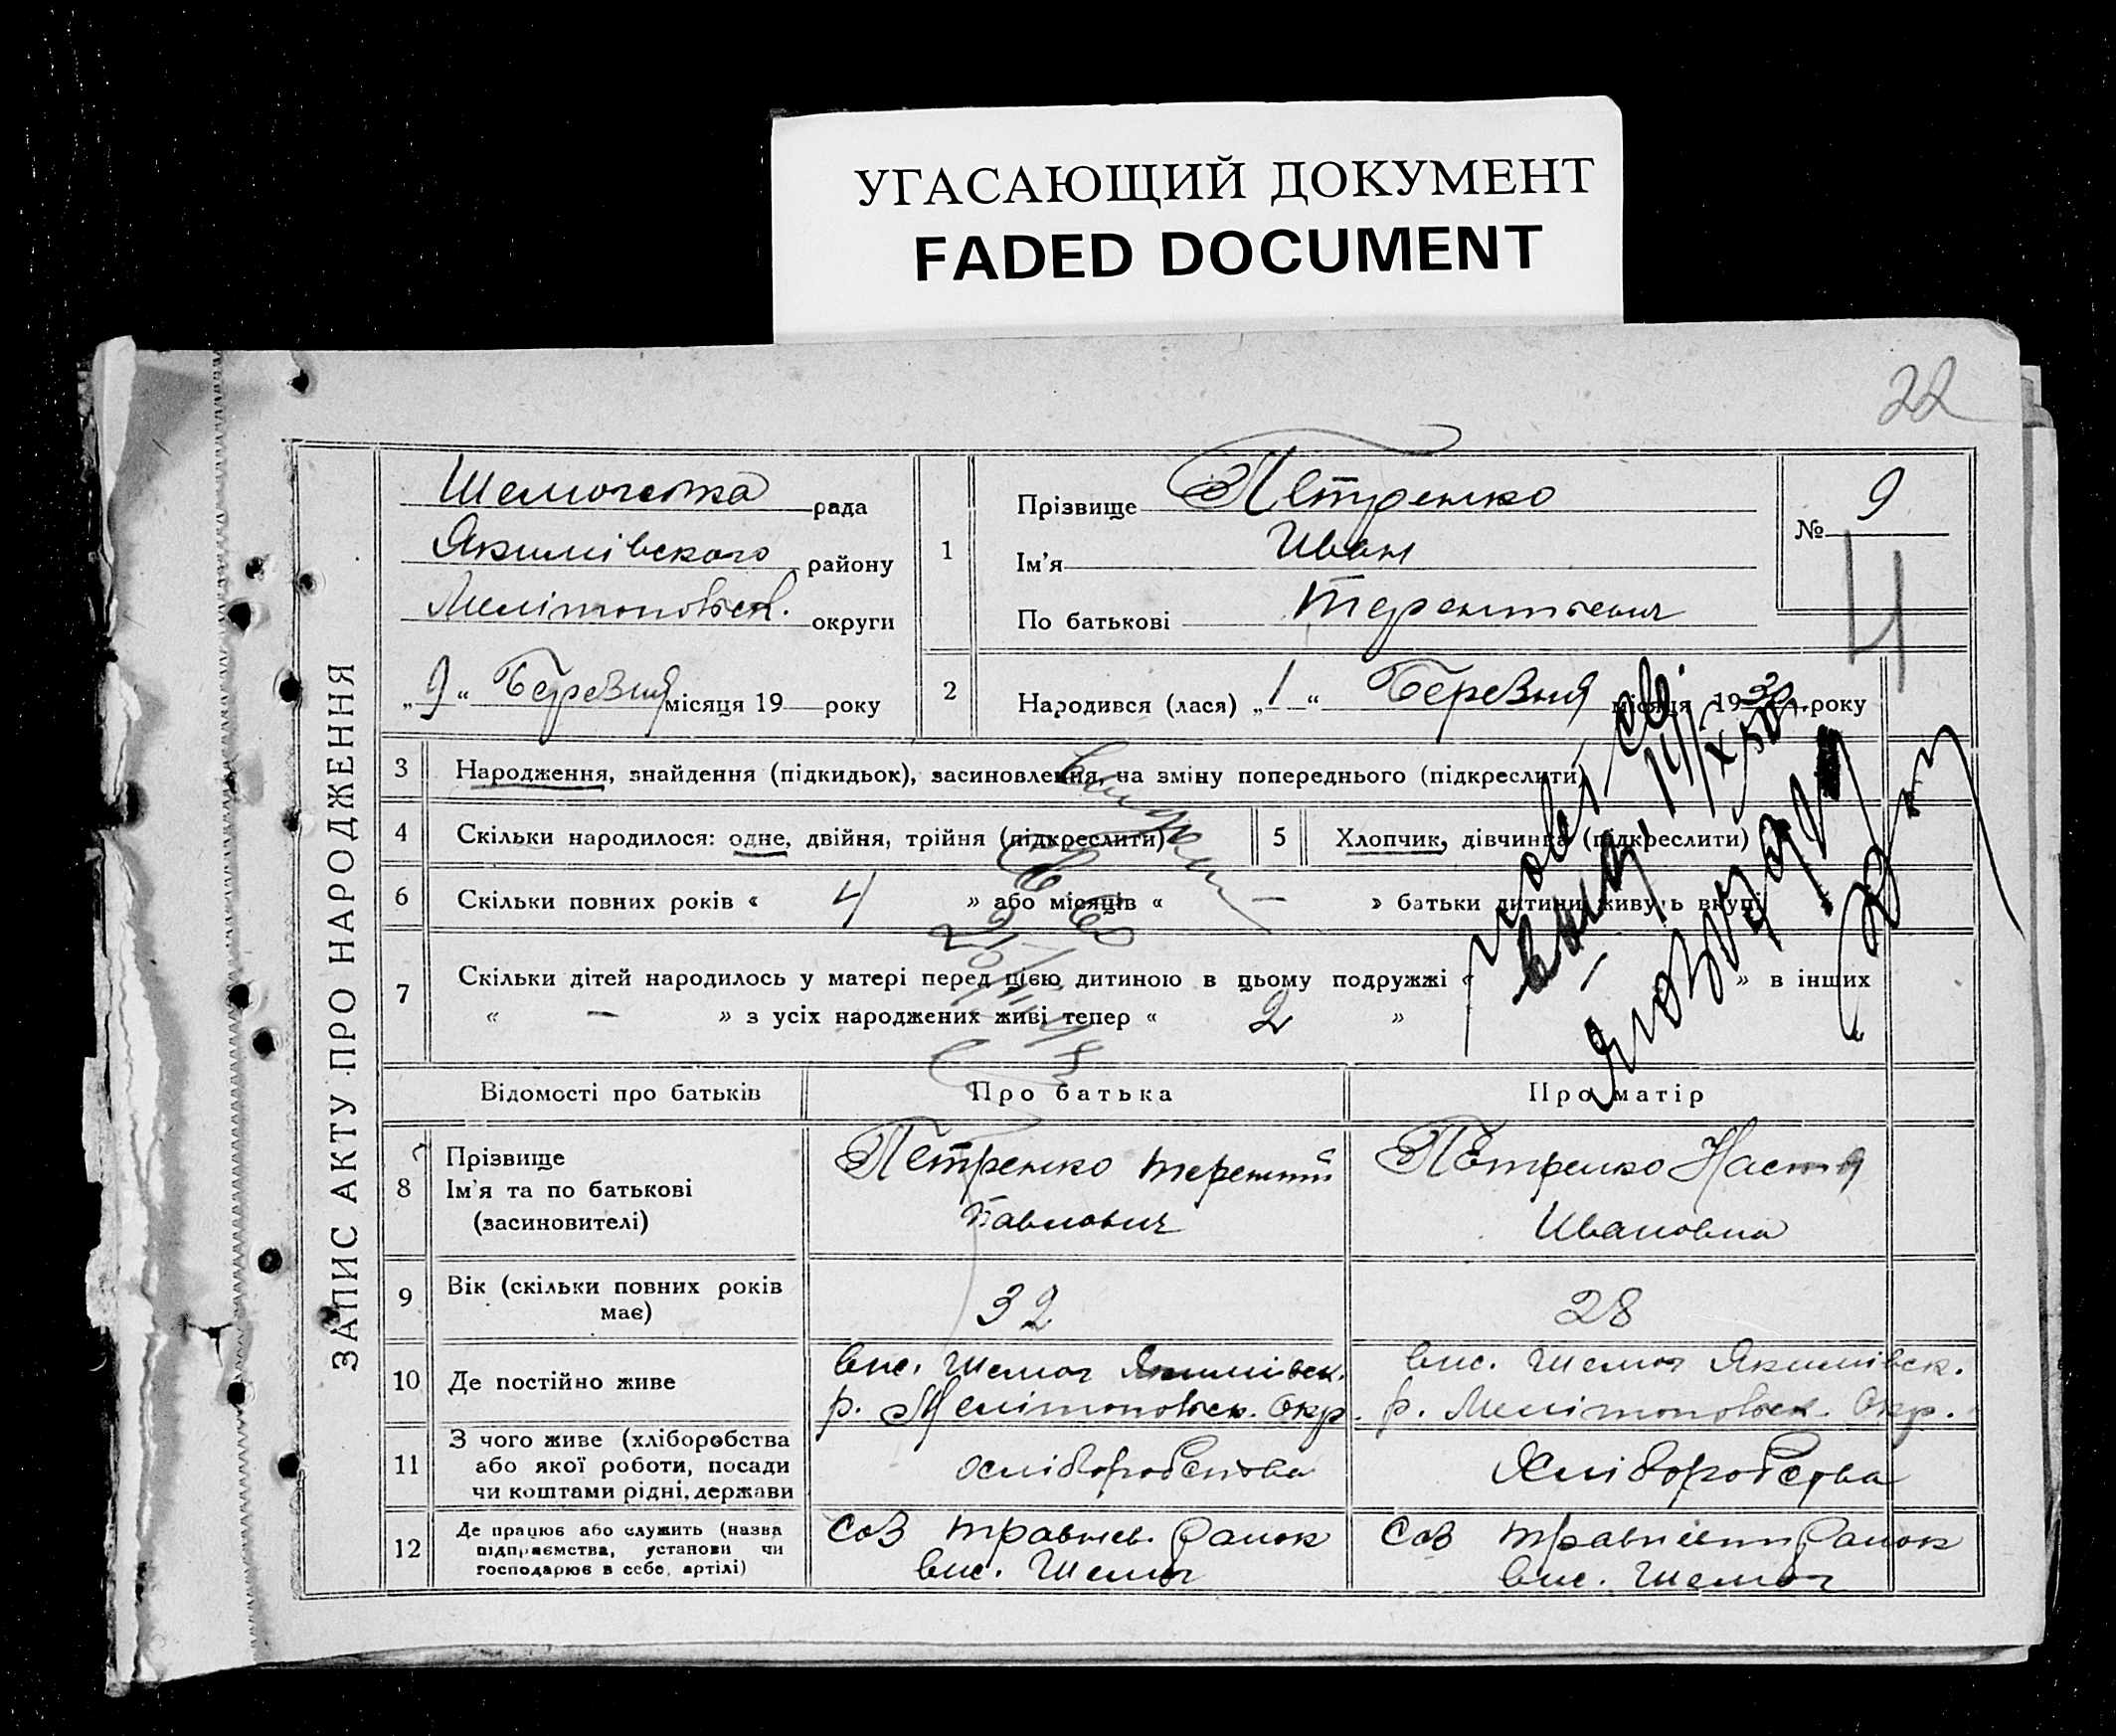 УГАСАЮЩИЙ ДОКУМЕНТ
FADED DOCUMENT
22
ЗАПИС АКТУ ПРО НАРОДЖЕННЯ
рада
Якимівского району
Мелітопольск. округи
„9“ Березня місяця 19 року
1
Прізвище Петренко
Ім'я Иван
По батькові Терентьевич
№ 9
4
2
Народився (лася) „1“ Березня місяця 1930 року
3 Народження, знайдення (підкидьок), засиновлення, на зміну попереднього (підкреслити)
4 Скільки народилося: одне, двійня, трійня (підкреслити)
5 Хлопчик, дівчинка (підкреслити)
6 Скільки повних років « 4 » або місяців « — » батьки дитини живуть вкупі
7 Скільки дітей народилось у матері перед цією дитиною в цьому подружжі « » в інших
« — » з усіх народжених живі тепер « 2 »
Відомості про батьків
Про батька
Про матір
8
Прізвище
Ім'я та по батькові
(засиновителі)
Петренко Терентій
Павлович
Петренко Настя
Ивановна
9
Вік (скільки повних років
має)
32
28
10 Де постійно живе
вис. Шемот Якимівск.
р. Мелітопольск. Окр.
вис. Шемот Якимівск.
р. Мелітопольск. Окр.
11
З чого живе (хліборобства
або якої роботи, посади
чи коштами рідні, держави
хліборобства
Хліборобства
12
Де працює або служить (назва
підприємства, установи чи
господарює в себе, артілі)
Соз травнев. Ранок
вис. Шемот
Соз Ранок
вис. Шемот